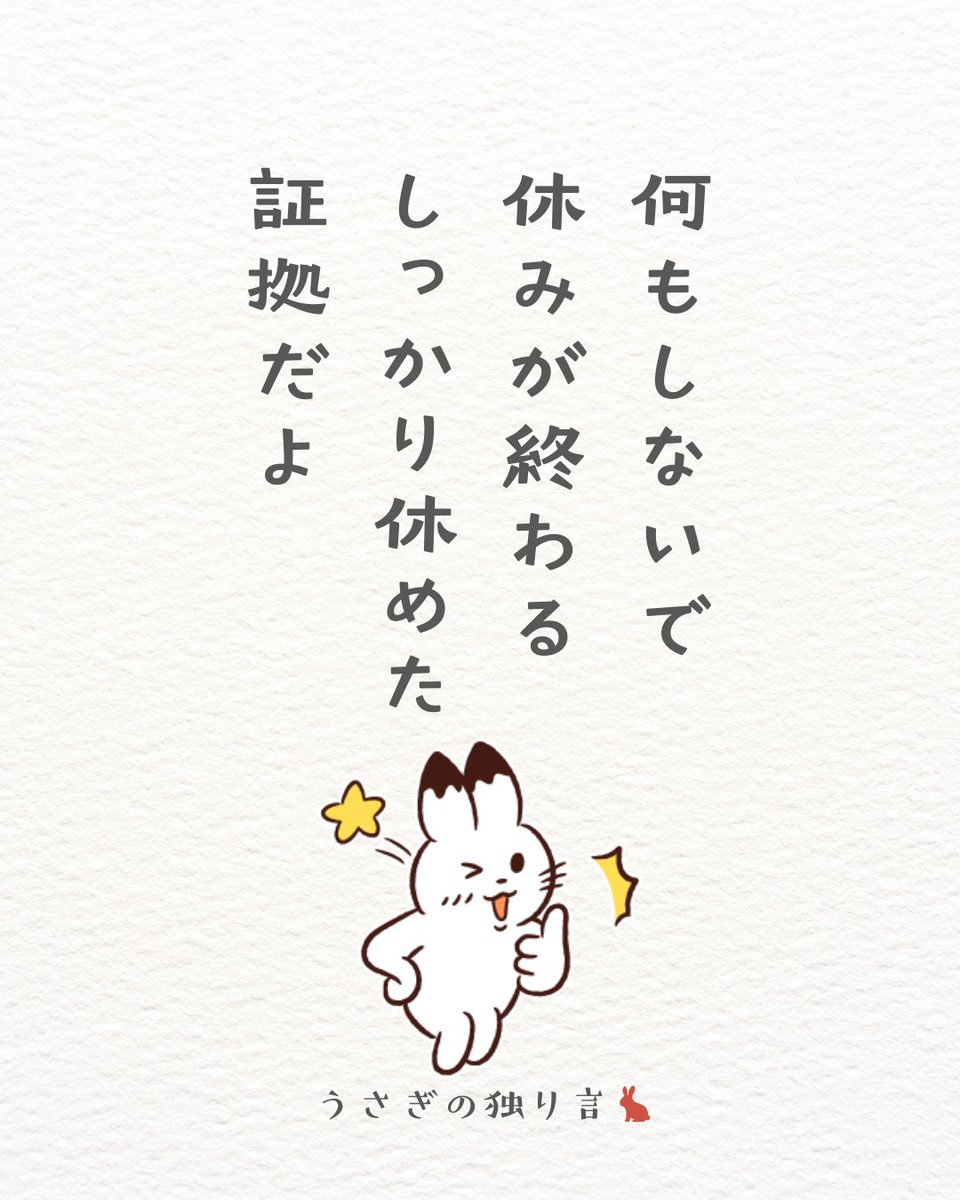 何もしないで
休みが終わる
しっかり休めた
証拠だよ
うさぎの独り言